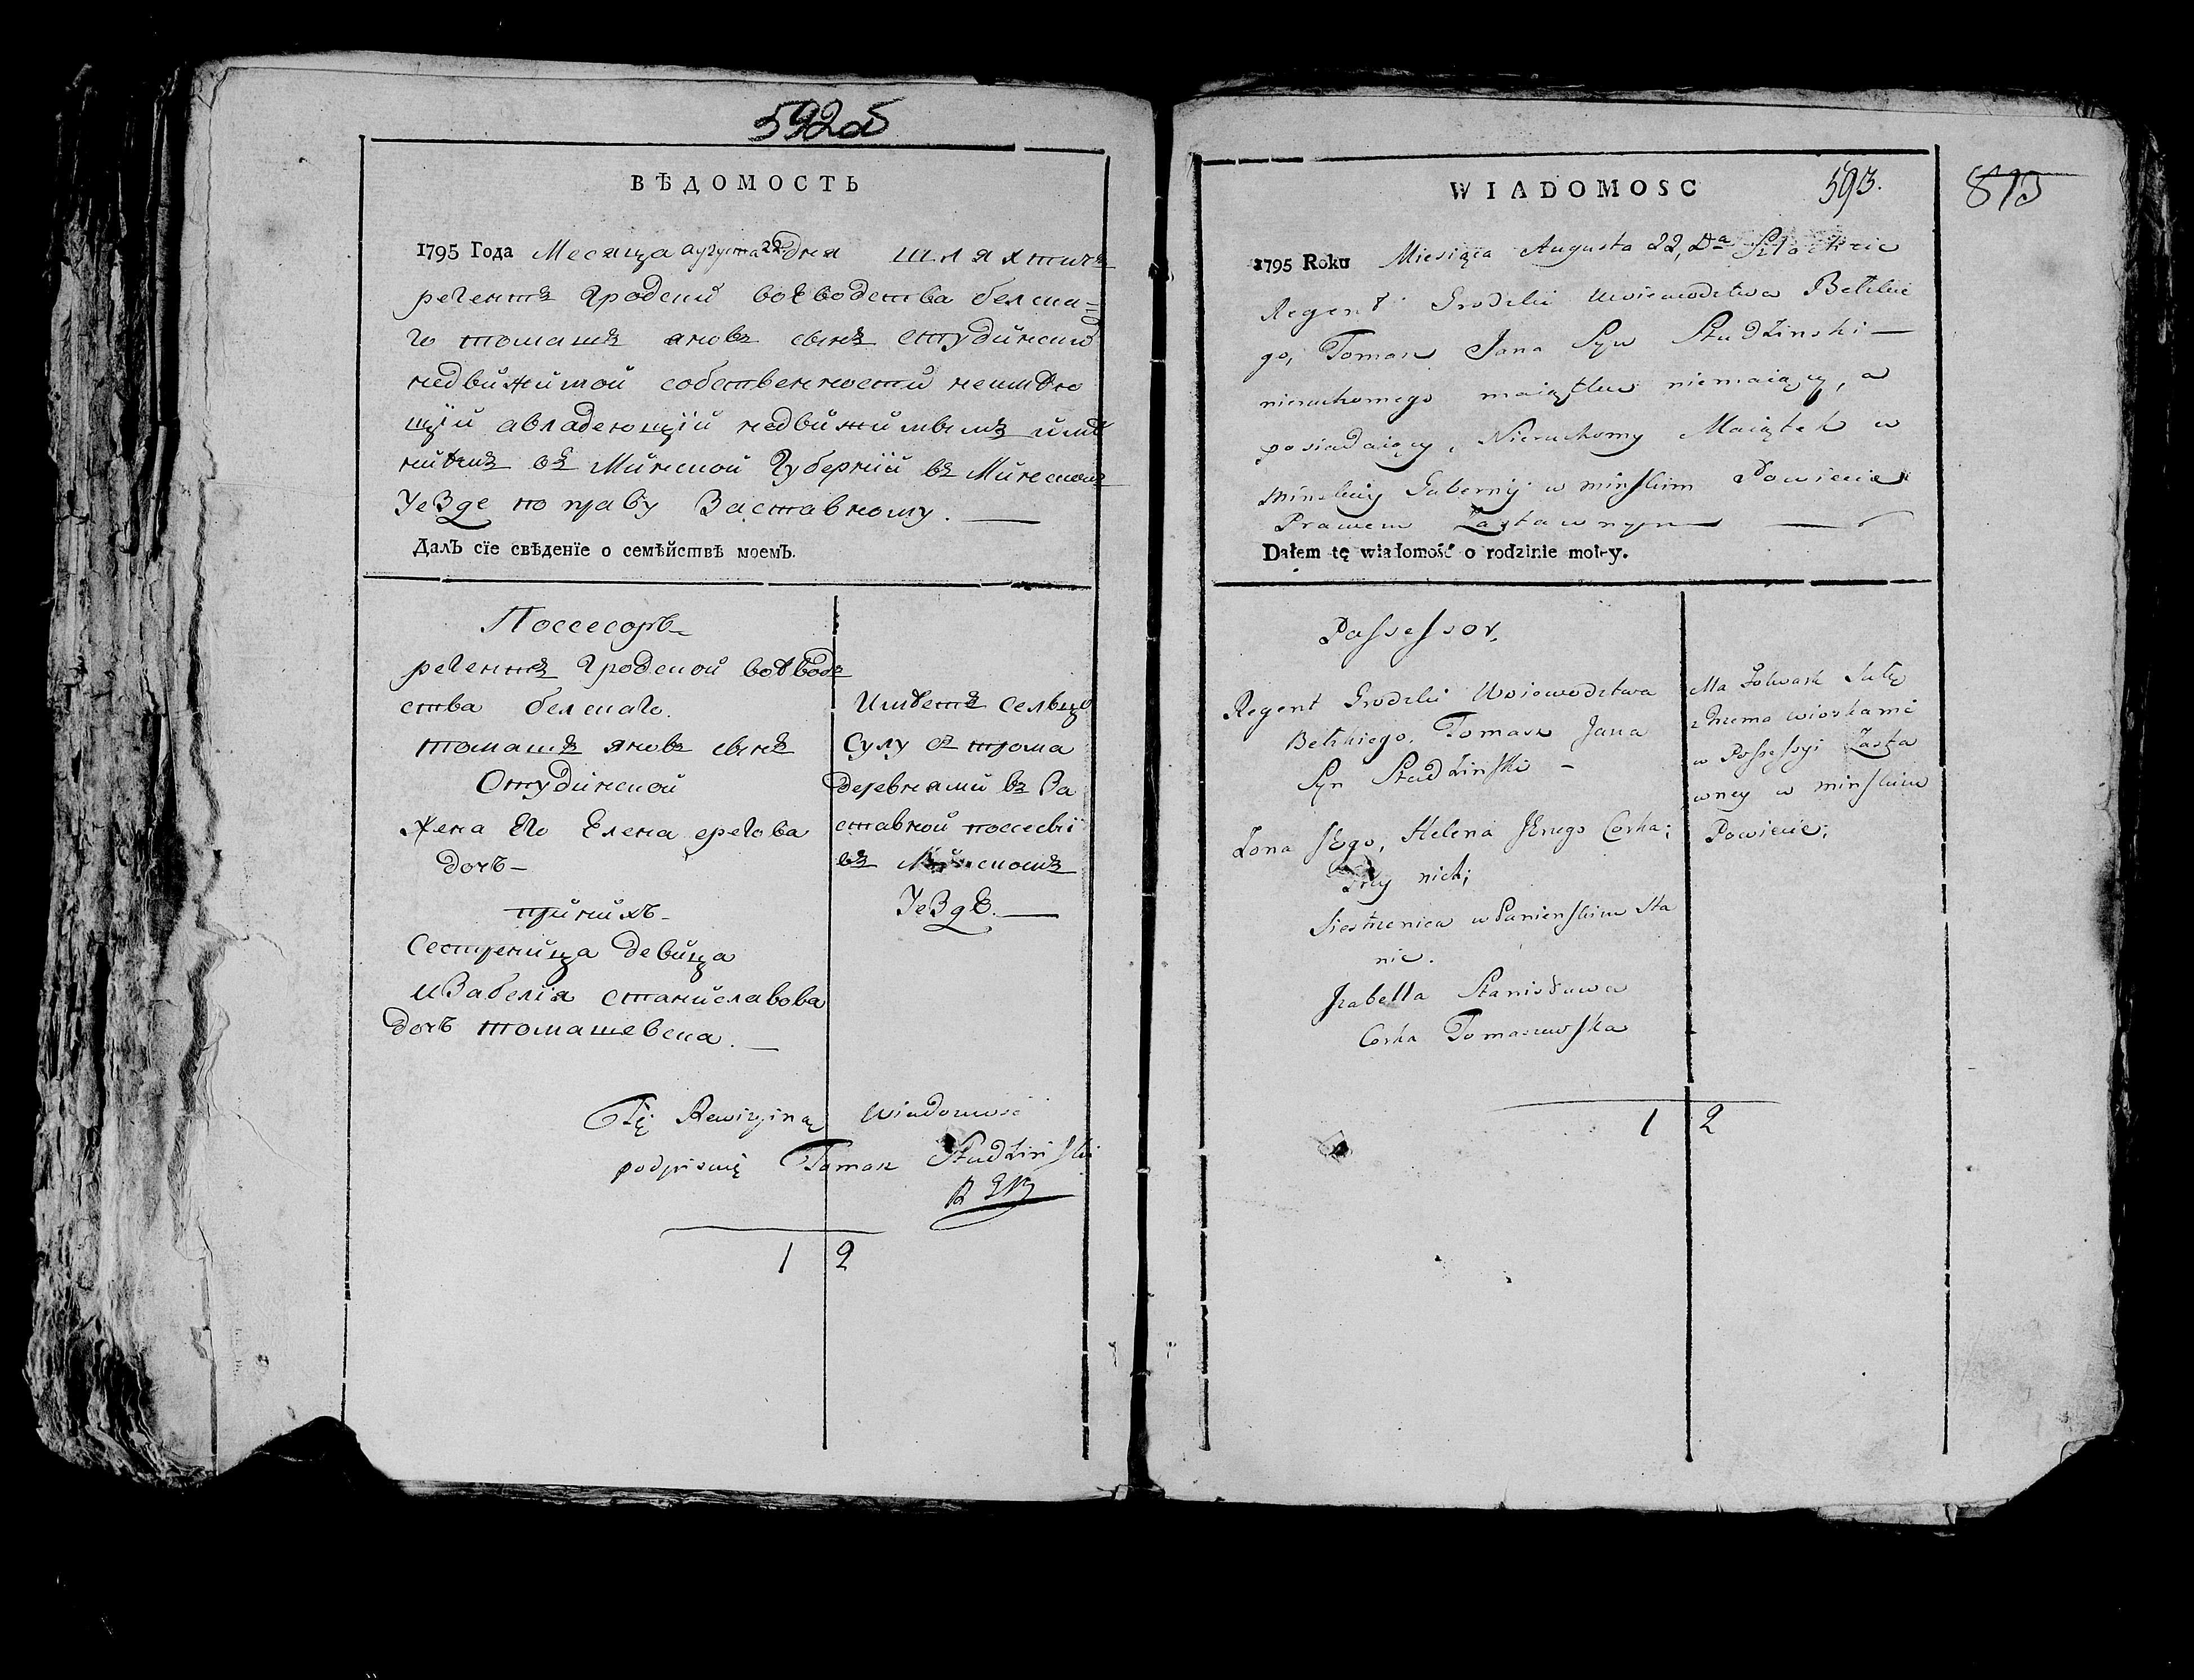 592об
ВѢДОМОСТЬ
1795 Года Месяца августа 22 дня шляхтичъ
регентъ гродскій воѣводства белска-
го томашъ яновъ сынъ студзинскій
недвижимой собственности неимѣю
щій авладеющій недвижимымъ имѣ
ниемъ въ Минской Губерніи въ Минскомъ
Уезде по праву Заставному.
ДалЪ сїе свѣденїе о семѣйствѣ моемЪ.
Поссесоръ
регентъ гродской воѣвод
ства белскаго.
томашъ яновъ сынъ
Студинской
Жена Его Елена ерегова
дочь
при нихъ
Сестреница девица
изабелія станиславова
дочь томашевска.
Имѣетъ сельцо
Сулу съ трома
деревнями въ За
ставной поссесіи
въ Минскомъ
Уездѣ.
Tę Rewizyiną Wiadomość
podpisuię Tomasz Studzinski
1 2
WIADOMOSC 593.
813
1795 Roku Miesiąca Augusta 22, Da Szlachcic
Regent Grodzki Woiewodztwa Bełzkie
go, Tomasz Jana Syn Studzinski
nieruchomego maiątku niemaiący, a
posiadaiący Nieruchomy Maiątek w
Minskiey Gubernij w minskim Powiecie
Prawem Zastawnym
Dałem tę wiadomość o rodzinie moiey.
Possessor,
Regent Grodzki Woiewodztwa
Bełzkiego, Tomasz Jana
Syn Studzinski
Zona Jego, Helena Jerzego Corka;
Przy nich;
Siestrzenica w Panienskim Sta
nie.
Izabella Stanisława
Corka Tomaszewska
Ma Folwark Sułę
z trzema wioskami
w Possessyi Zasta
wney w minskim
Powiecie;
1 2